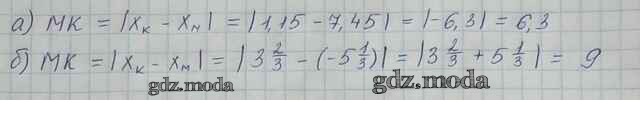 а) MK = |x_к - x_м| = |1,15 - 7,45| = |-6,3| = 6,3
б) MK = |x_к - x_м| = |3 2/3 - (-5 1/3)| = |3 2/3 + 5 1/3| = 9
gdz.moda gdz.moda